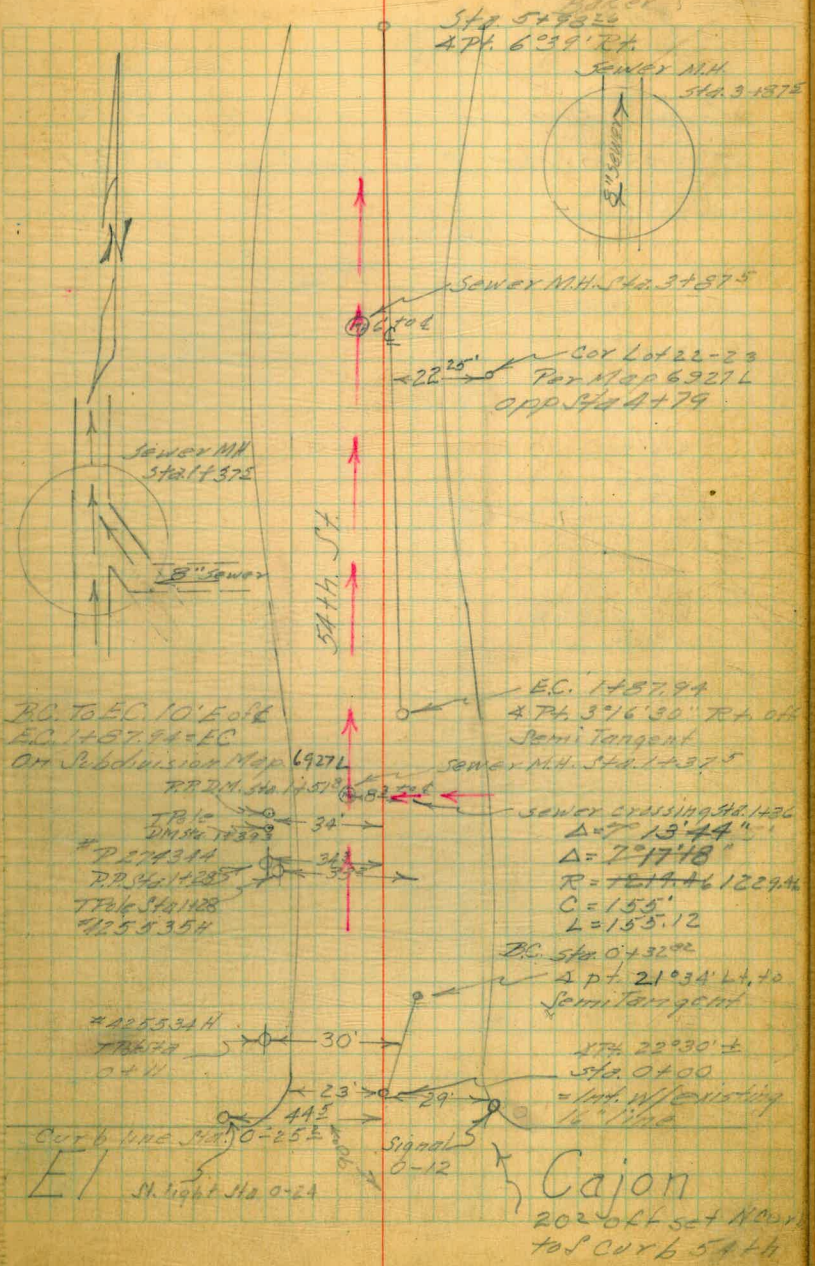 Baker
Sta. 5+98 20
∡ Pt. 6°39' Rt.
Sewer M.H.
Sta. 3+87 5
8" Sewer
N
Sewer M.H. Sta. 3+87 5
6 to ℄
22 25'
Cor Lot 22-23
Per Map 6927 L
opp Sta 4+79
Sewer MH
Sta. 1+37 5
8" Sewer
54th. St.
E.C. 1+87.94
∡ Pt. 3°16'30" Rt. off
Semi Tangent
B.C. To E.C. 10' E of ℄
E.C. 1+87.94 = EC
on Subdivision Map 6927 L
Sewer M.H. Sta. 1+37 5
P.P. D.M. Sta. 1+51 8
8 2 to ℄
Sewer crossing Sta. 1+36
T Pole
DM Sta 1+39 3
34'
Δ = 7° 13'44"
Δ = 7°17'18"
R = 1219.46 1229.46
C = 155'
L = 155.12
#
P 274344
P.P. Sta 1+28 5
T Pole Sta 1+28
#425535H
34 5
35 5
B.C. Sta. 0+32 82
∡ pt. 21°34' Lt. to
Semi Tangent
#425534 H
T Pole Sta
0+11
30'
∡ Pt. 22°30' ±
Sta. 0+00
= Int. W/existing
16" line
23'
29'
44 5
Curb line Sta. 0-25 5
90
Signal
0-12
El
St. light Sta 0-24
Cajon
20 2 off set N Curb
to ℄ Curb 54th